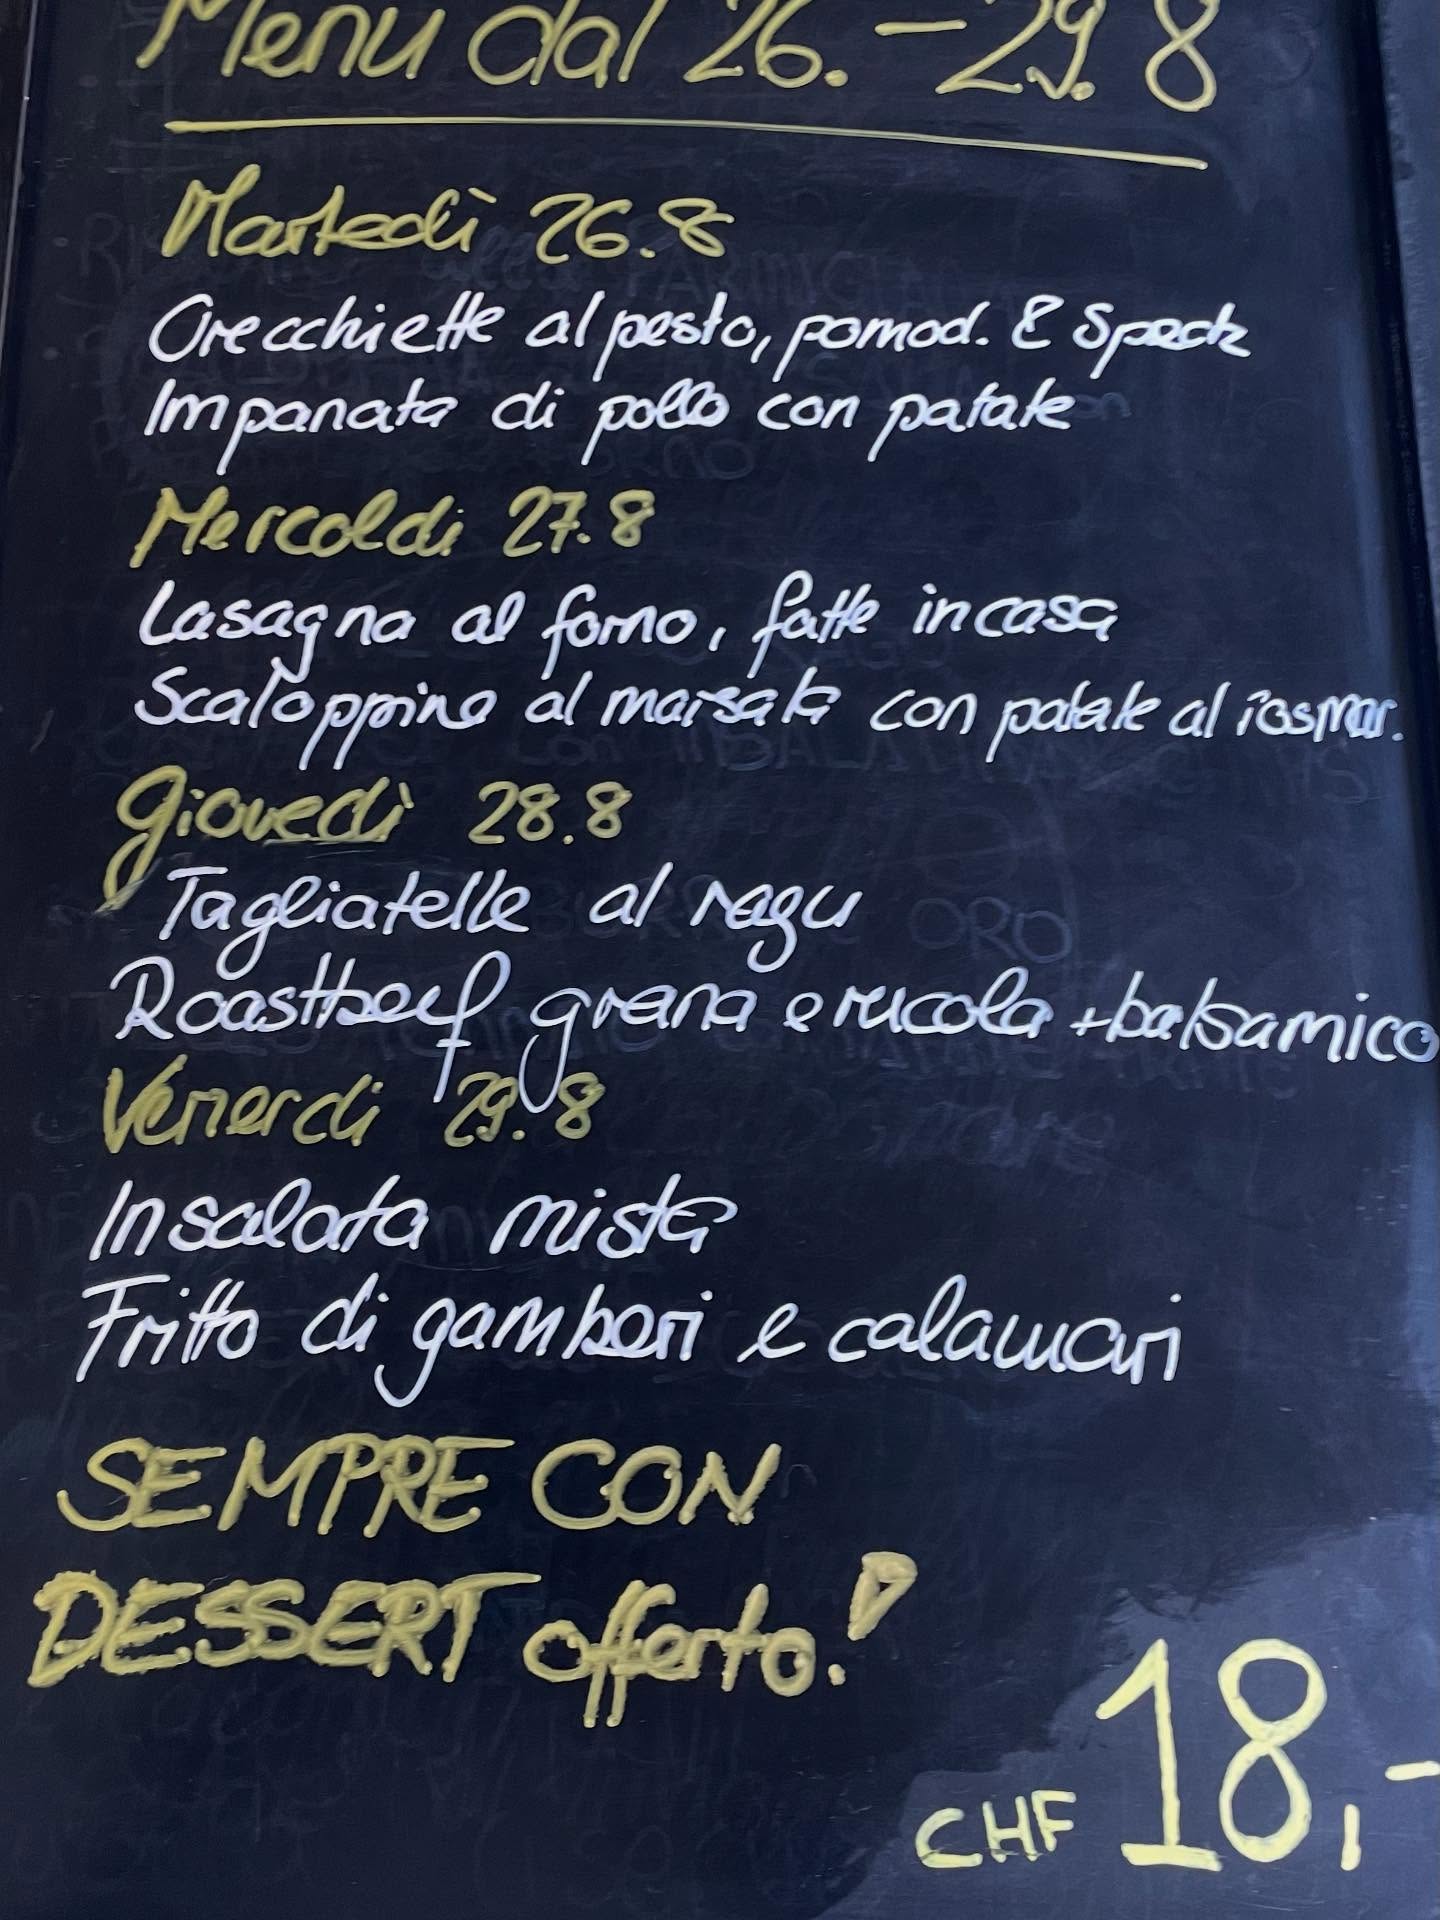 Menu dal 26. - 29. 8
Martedì 26.8
Orecchiette al pesto, pomod. & Speck
Impanata di pollo con patate
Mercoldi 27.8
Lasagna al forno, fatte in casa
Scaloppine al marsala con patate al rosmar.
Giovedì 28.8
Tagliatelle al ragu
Roastbeef grana e rucola + balsamico
Venerdi 29.8
Insalata mista
Fritto di gamberi e calamari
SEMPRE CON
DESSERT offerto!
CHF 18,-